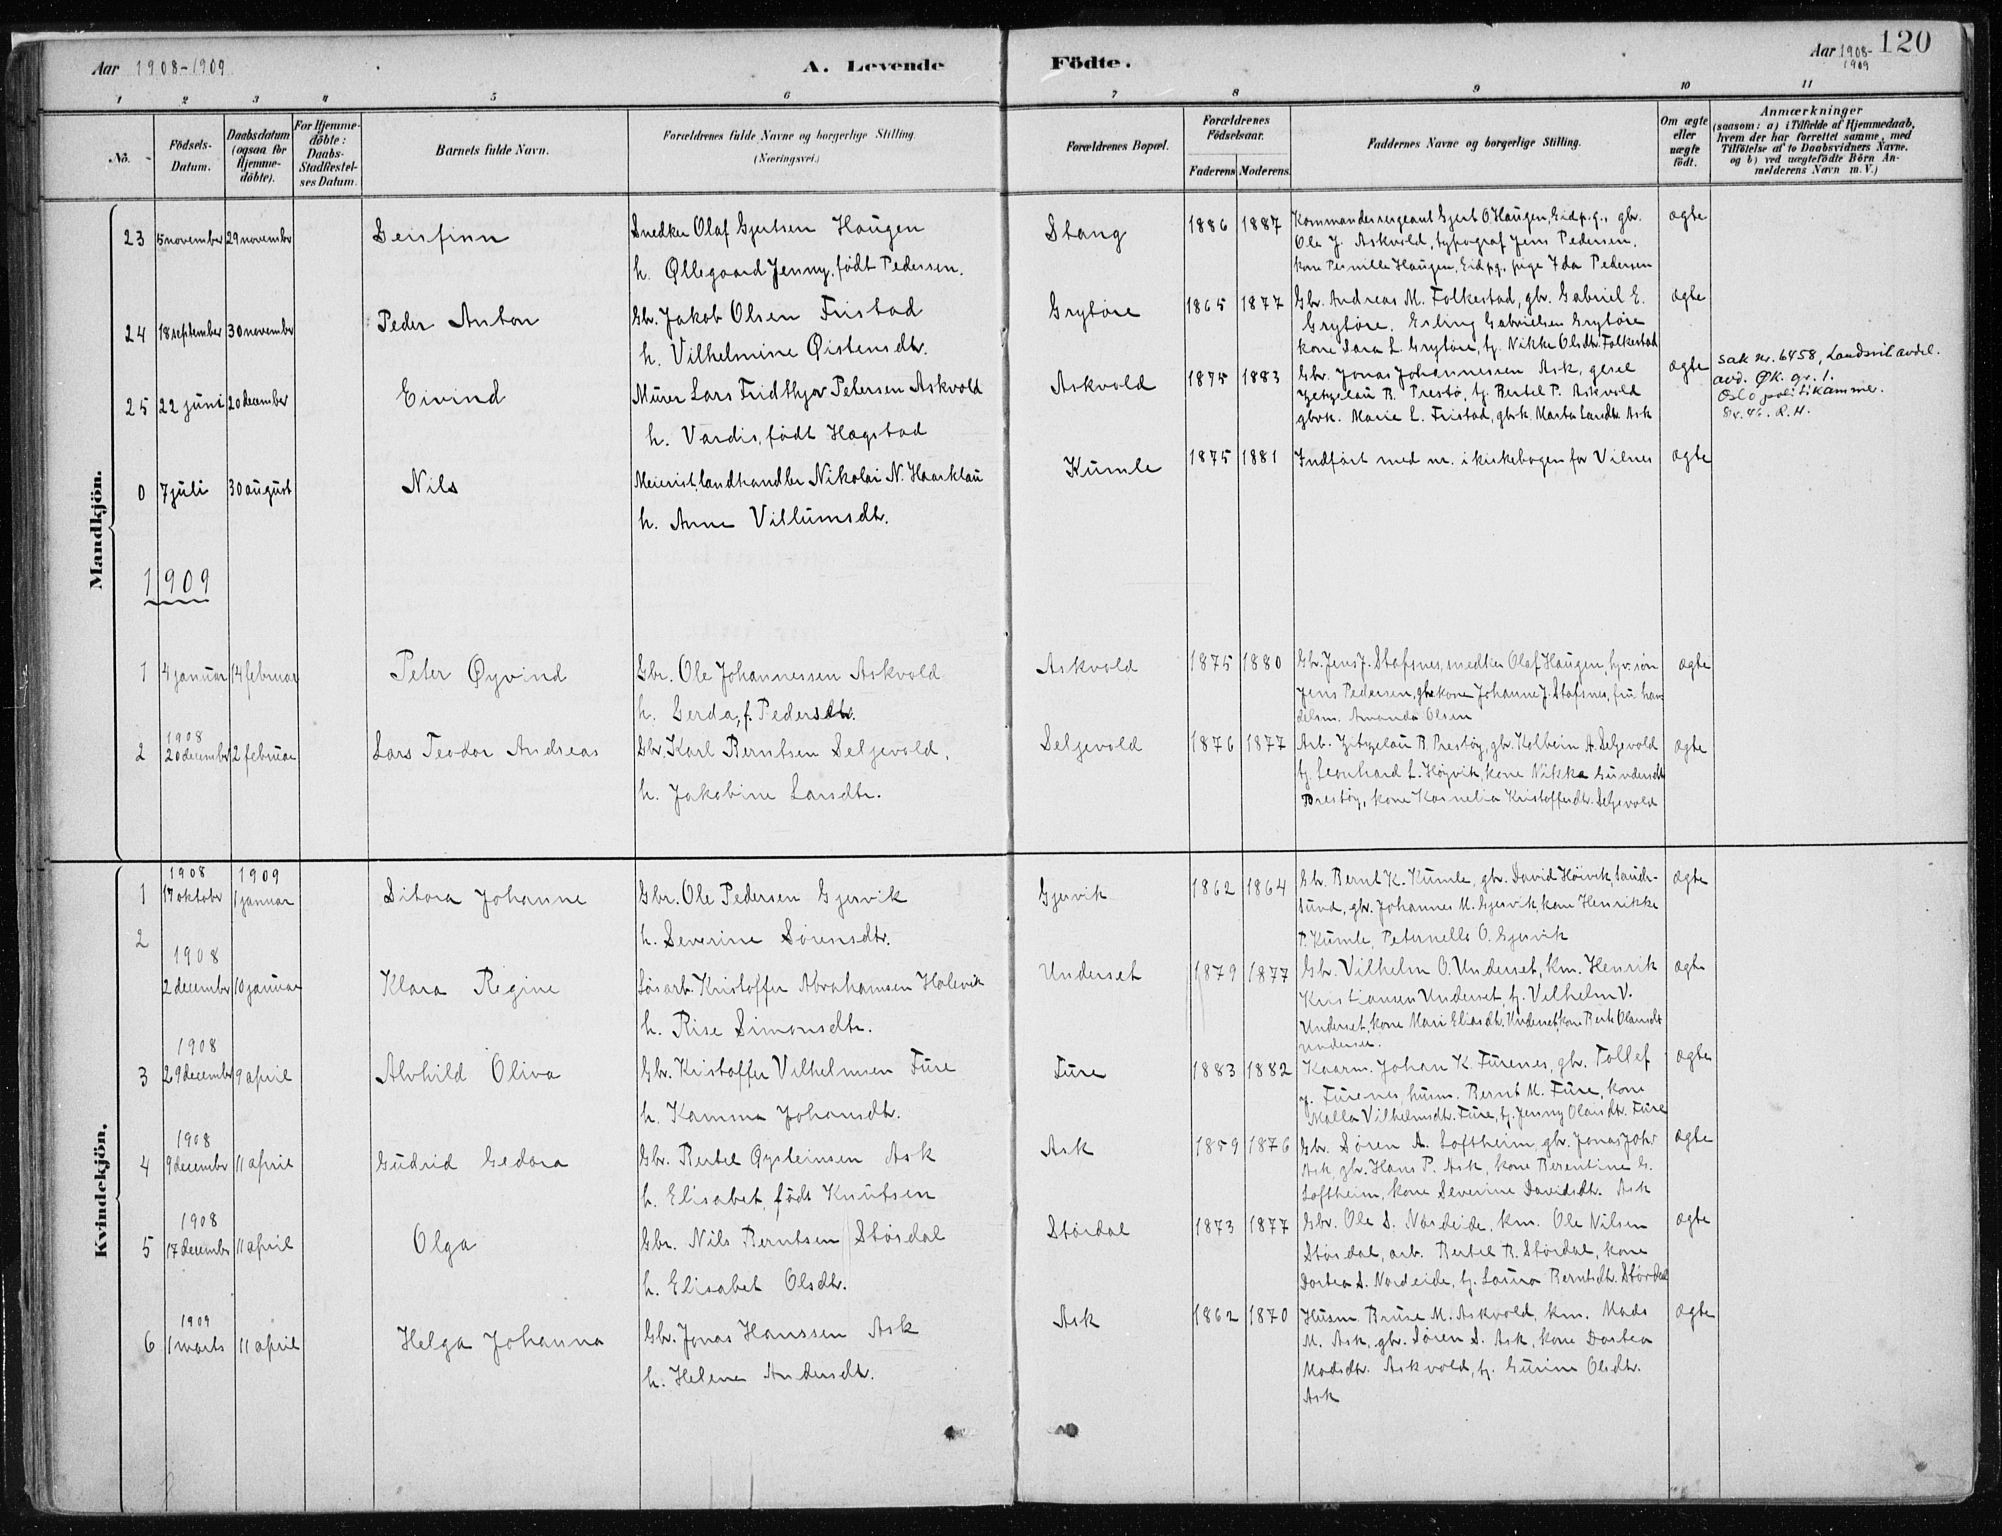 Aar 1908-1909
A. Levende Födte.
Aar 1908-1909
120
1 2 3 4 5 6 7 8 9 10 11
No.
Födsels-Datum.
Daabsdatum (ogsaa for Hjemme-döbte).
For Hjemme-döbte: Daabs-Stadfestel-ses Datum.
Barnets fulde Navn.
Forældrenes fulde Navne og borgerlige Stilling.
(Næringsvei.)
Forældrenes Bopæl.
Forældrenes Födselsaar.
Faderens Moderens
Faddernes Navne og borgerlige Stilling.
Om ægte eller uægte födt.
Anmærkninger
(saasom: a) i Tilfælde af Hjemmedaab,
hvem der har forrettet samme, med
Tilföielse af to Daabsvidners Navne,
og b) ved uægtefödte Börn An-
melderens Navn m. V.)
Mandkjön.
23 5 november 29 november Geirfinn
Snedker Olaf Gjertsen Haugen
h. Øllegaard Jenny, født Pedersen.
Stang 1886 1887
Kommandersergeant Gjert O Haugen, Eid p.g., gbr.
Ole J. Askvold, typograf Jens Pedersen,
kone Pernille Haugen, Eid pg, pige Ida Pedersen
ægte
24 18 september 30 november Peder Anton
Gbr. Jakob Olsen Fristad
h. Vilhelmine Øistensdtr.
Grytøre 1865 1877
Gbr. Andreas M. Folkestad, gbr. Gabriel E.
Grytøre, Erling Gabrielsen Grytøre
kone Sara L. Grytøre, tj. Nikke Olsdtr. Folkestad
ægte
25 22 juni 20 december Eivind
Murer Lars Fridthjor Petersen Askvold
h. Vardis, født Hægstad
Askvold 1875 1883
Gbr. Jonas Johannessen Ask, gesel
B. Prestø, tj. Bertel P. Askvold
gbvk. Marie L. Fristad, gbrk. Marta Larsdtr. Ask
ægte
sak nr. 6458, Landssvikavdel.
avd. ØK. gr. 1.
Oslo politikammer.
46. R.H.
0 7 juli 30 august Nils
Meierist, landhandler Nikolai N. Haarklau
h. Anne Villumsdtr.
Kumle 1875 1881
Indført med nr. i kirkebogen for Vilnes
ægte
1909
1 4 januar 14 februar Peter Øyvind
Gbr. Ole Johannessen Askvold
h. Gerda, f. Pedersdtr.
Askvold 1875 1880
Gbr. Jens J. Stafsnes, snedker Olaf Haugen, søn
Jens Pedersen, gbrkone Johanne J. Stafsnes, fru han
delsm. Amanda Olsen
ægte
2 1908
20 decembr 2 februar Lars Teodor Andreas
Gbr. Karl Berntsen Seljevold,
h. Jakobine Larsdtr.
Seljevold 1876 1877
Arb. B. Prestøy, gbr. Kolbein A. Seljevold
tj. Leonhard L. Høyvik, kone Nikka Gundersdtr
Prestøy, kone Kornelia Kristoffersdtr. Seljevold
ægte
Kvindekjön.
1 1908 1909
17 oktobr 1 januar Sitora Johanne
Gbr. Ole Pedersen Gjervik
h. Severine Sørensdtr.
Gjervik 1862 1864
Gbr. Bernt K. Kumle, gbr. David Høivik,
Sund, gbr. Johannes M. Gjervik, kone Henrikke
P. Kumle, Peternelle O. Gjervik
ægte
2 1908
2 december 10 januar Klara Regine
Løsarb. Kristoffer Abrahamsen Holevik
h. Rise Simonsdtr.
Underset 1879 1877
Gbr. Vilhelm O. Underset, km. Henrik
Kristiansen Underset, tj. Vilhelm V.
Underset, kone Mari Eliasdtr. Underset, kone Berte Olansdtr
Underset.
ægte
3 1908
29 decembr 9 april Alvhild Oliva
Gbr. Kristoffer Vilhelmsen Fure
h. Kamma Johansdtr.
Fure 1883 1882
Kaarm. Johan K. Furenes, gbr. Tollef
J. Furenes, husm. Bernt M. Fure, kone
Malla Vilhelmsdtr. Fure, tj. Jenny Olansdtr. Fure
ægte
4 1908
9 decembr 11 april Gudrid Gedora
Gbr. Bertel Øysteinsen Ask
h. Elisabet, født Knutsen
Ask 1859 1876
Gbr. Søren A. Loftheim, gbr. Jonas Johs
Ask, gbr. Hans P. Ask, kone Berentine G.
Loftheim, kone Severine Davidsdtr. Ask
ægte
5 1908
17 decembr 11 april Olga
Gbr. Nils Berntsen Størdal
h. Elisabet Olsdtr.
Størdal 1873 1877
Gbr. Ole S. Nordeide, km. Ole Nilsen
Størdal, arb. Bertel B. Størdal, kone
Dortea S. Nordeide, tj. Laura Berntsdtr. Størdal
ægte
6 1909
1 marts 11 april Helga Johanna
Gbr. Jonas Hanssen Ask
h. Helene Andersdtr.
Ask 1862 1870
Husm. Bruse M. Askvold, km. Mads
M. Ask, gbr. Søren S. Ask, kone Dortea
Madsdtr. Askvold, tj. Gurine Olsdtr.
Ask
ægte